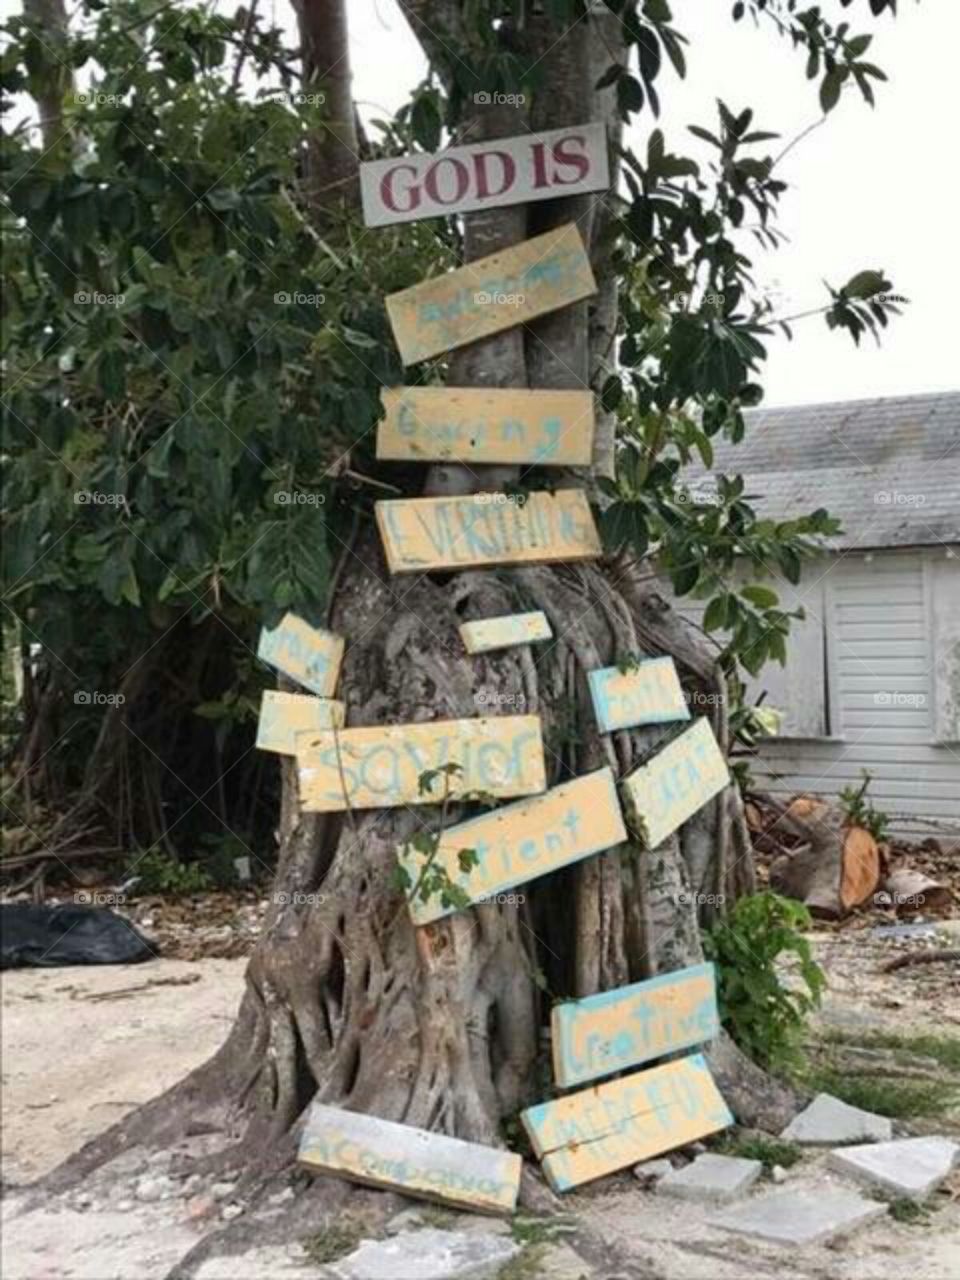 GOD IS
awesome
EVERYTHING
Savior
GREAT
Patient
Creative
MERCIFUL
a companion